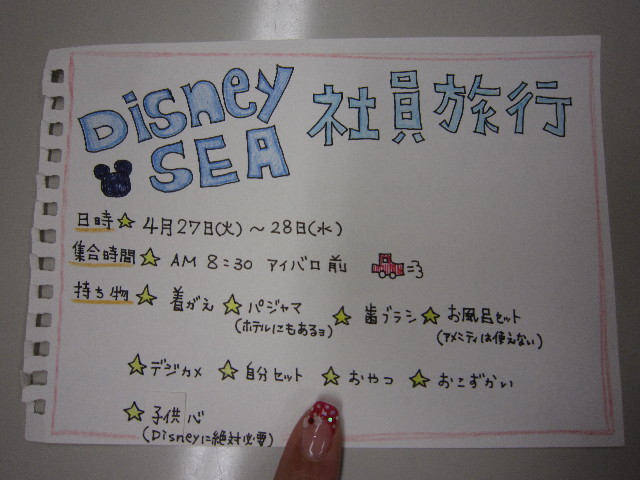 Disney 社員旅行
SEA
日時☆ 4月27日(火)～28日(水)
集合時間☆ AM 8:30 アイバロ前
持ち物☆ 着がえ ☆パジャマ ☆歯ブラシ ☆お風呂セット
(ホテルにもあるヨ) (アメニティは使えない)
☆デジカメ ☆自分セット ☆おやつ ☆おこずかい
☆子供心
(Disneyに絶対必要)